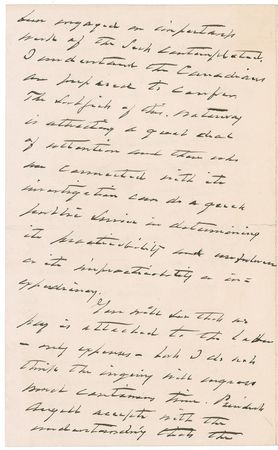 been engaged on important
work of the sort contemplated,
I understand the Canadians
are prepared to confer.
The subject of this waterway
is attracting a great deal
of attention and those who
are connected with its
investigation can do a great
public service in determining
its practicability and usefulness
or its impracticability or in-
expediency.
You will see that no
pay is attached to the labor
- only expenses - but I do not
think the inquiry will engross
most continuous time. President
Angell accepts with the
understanding that the